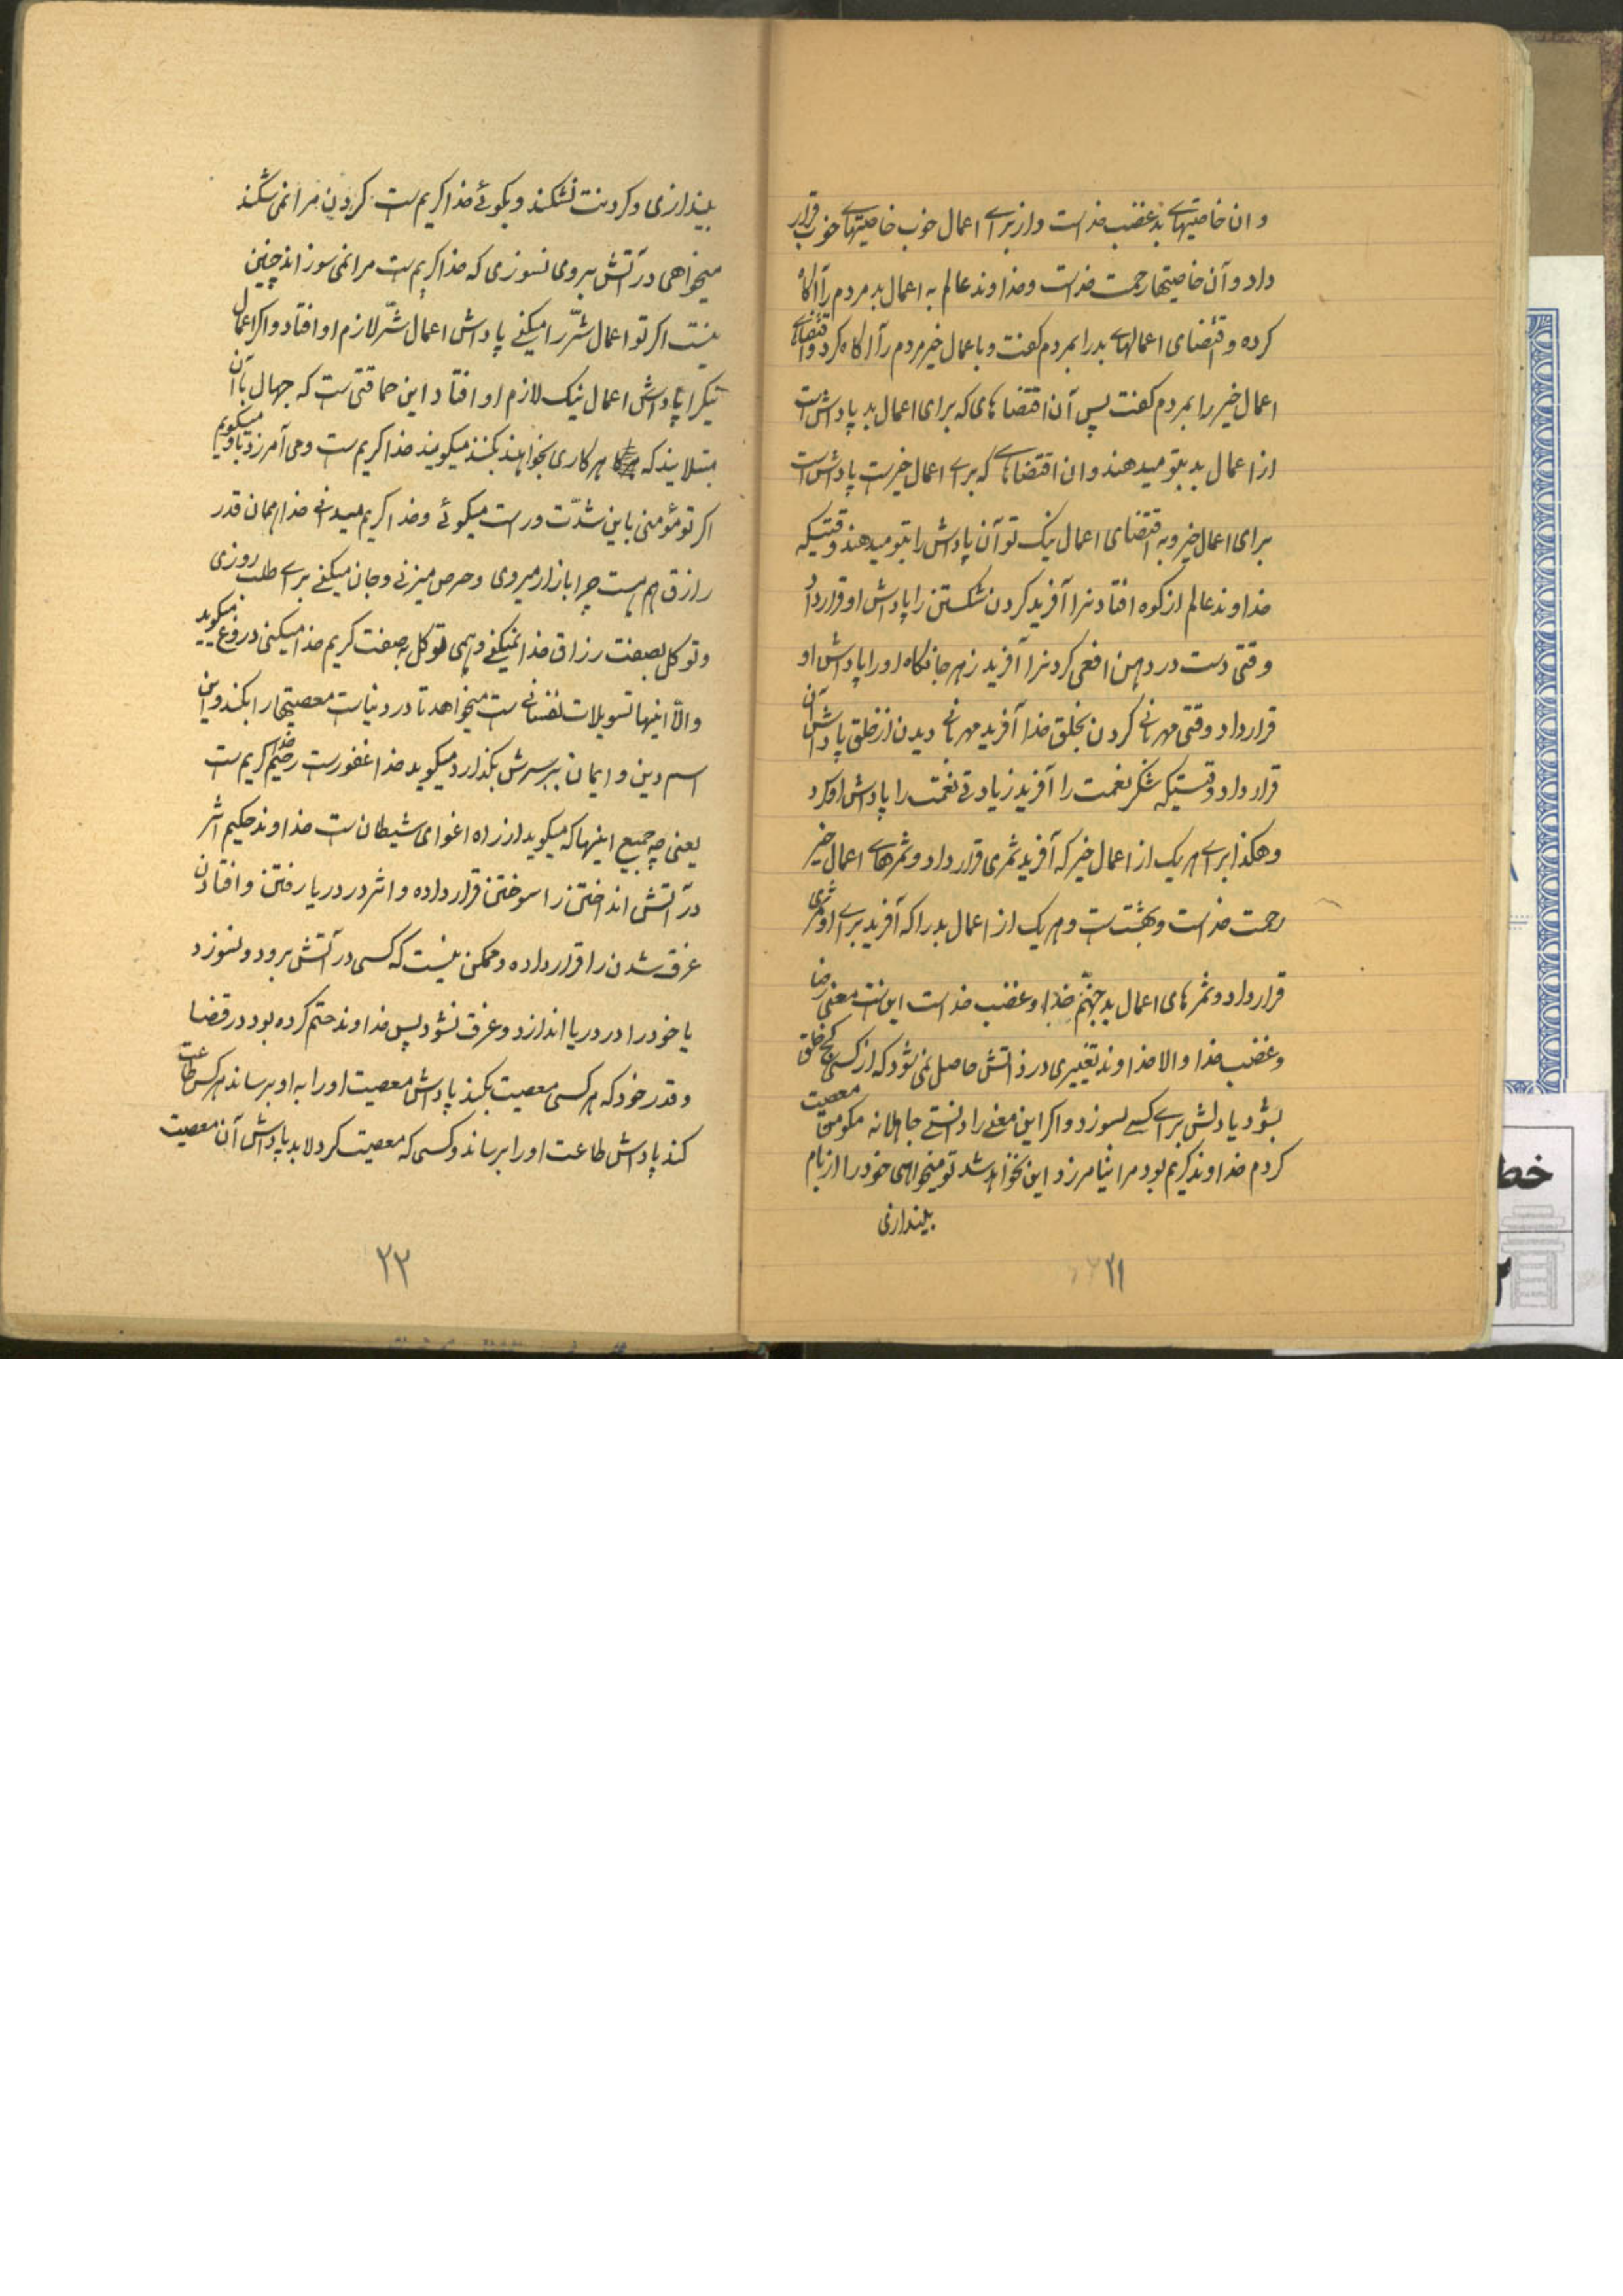 و ان خاصیتهای بد غضب خداست و از برای اعمال خوب خاصیتهای خوب قرار
داد و آن خاصیتها رحمت خداست و خداوند عالم به اعمال بد مردم را آگاه
کرده و اقتضای اعمالهای بد را بمردم گفت و باعمال خیر مردم را آگاه کرد و اقتضای
اعمال خیر را بمردم گفت پس آن اقتضاهای که برای اعمال بد پاداش است
از اعمال بد بتو میدهند و ان اقتضاهای که برای اعمال خیرست پاداش است
برای اعمال خیر و به اقتضای اعمال نیک تو آن پاداش را بتو میدهند وقتیکه
خداوند عالم از کوه افتادنرا آفرید گردن شکستن را پاداش او قرار داد
وقتی دست در دهن افعی کردنرا آفرید زهر جانکاه او را پاداش او
قرار داد وقتی مهربانی کردن بخلق خدا آفرید مهربانی دیدن از خلق پاداش آن
قرار داد وقتیکه شکر نعمت را آفرید زیادتی نعمت را پاداش او کرد
و هکذا برای هر یک از اعمال خیر که آفرید ثمری قرار داد و ثمرهای اعمال خیر
رحمت خداست و بهشتست و هر یک از اعمال بد را که آفرید برای او ثمری
قرار داد و ثمرهای اعمال بد جهنّم خدا و غضب خداست این‌ست معنی رضا
و غضب خدا و الا خداوند تغییری در ذاتش حاصل نمی‌شود که از کسی کج خلق
بشود یا دلش برای کسی بسوزد و اگر این معنی را دانستی جاهلانه مگو من معصیت
کردم خداوند کریم بود مرا بیامرزد این نخواهد شد تو میخواهی خود را از بام
بیندازی
۲۱
بیندازی و گردنت نشکند و بگوئی خدا کریم‌ست گردن مرا نمی‌شکند
میخواهی در آتش بروی نسوزی که خدا کریم‌ست مرا نمی سوزاند چنین
نیست اگر تو اعمال شرّ را میکنی پاداش اعمال شرّ لازم او افتاد و اگر اعمال
نیکرا پاداش اعمال نیک لازم او افتاد این حماقتی‌ست که جهال بآن
مبتلایند که هر کاری بخواهند بکنند میگویند خدا کریم‌ست و می آمرزد باو میگویم
اگر تو مؤمنی باین شدّت و راست میگوئی و خدا کریم میدانی خدا همان قدر
رازق هم هست چرا بازار میروی و حرص میزنی و جان میکنی برای طلب روزی
و توکل بصفت رزاق خدا نمیکنی و همی توکل بصفت کریم خدا میکنی دروغ میگوید
والّا اینها تسویلات نفسانی‌ست میخواهد تا در دنیاست معصیتها را بکند و این
اسم دین و ایمان بر سرش بگذارد میگوید خدا غفورست رحیم خدا کریم‌ست
یعنی چه جمیع اینها که میگوید از راه اغوای شیطان‌ست خداوند حکیم اثر
در آتش انداختن را سوختن قرار داده و اثر در دریا رفتن و افتادن
غرق شدن را قرار داده و ممکن نیست که کسی در آتش برود و نسوزد
یا خود را در دریا اندازد و غرق نشود پس خداوند حتم کرده بود در قضا
و قدر خود که هر کسی معصیت بکند پاداش معصیت او را به او برساند هر کس طاعت
کند پاداش طاعت او را برساند و کسی که معصیت کرد لابد پاداش آن معصیت
۲۲
خط
۲